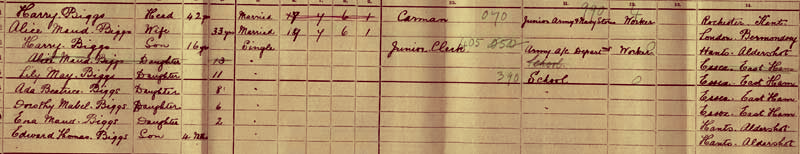 Harry Biggs Head 42 yrs Married 17 7 6 1 Carman 070 Junior Army & Navy Stores 990 4 Worker Rochester Kent
Alice Maud Biggs Wife 33 yrs Married 17 7 6 1 London Bermondsey
Harry Biggs Son 16 yrs Single Junior Clerk 405 Army a/c Depart Worker Hants Aldershot
Alice Maud Biggs Daughter 13 " School Essex East Ham
Lily May Biggs Daughter 11 " 390 School 0 Essex East Ham
Ada Beatrice Biggs Daughter 8 " Essex East Ham
Dorothy Mabel Biggs Daughter 6 " Essex East Ham
Eva Maud Biggs Daughter 2 " Hants Aldershot
Edward Thomas Biggs Son 4 Mths Hants Aldershot